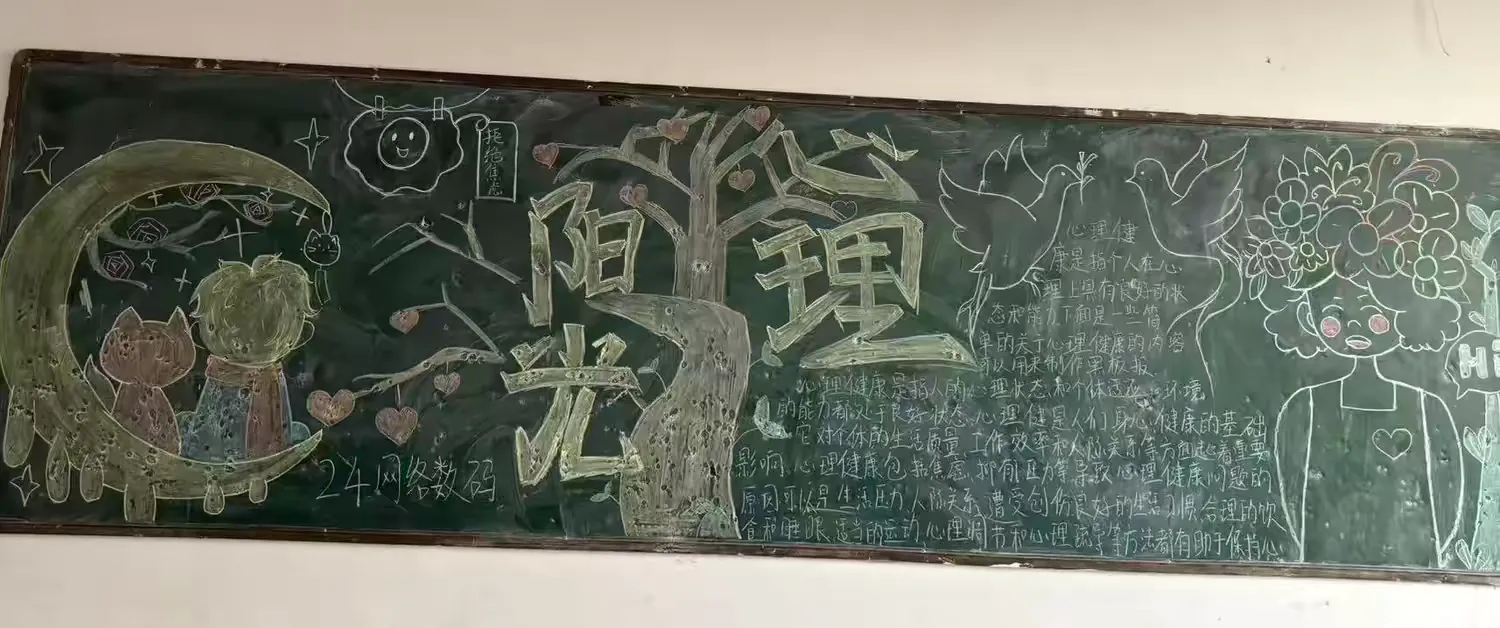 拒绝焦虑
阳光
心理
24网络数码
心理健
康是指个人在心
理上具有良好的状
态和能力下面是一些简
单的关于心理健康的内容
可以用来制作黑板报
心理健康是指人的心理状态和个体适应环境
的能力都处于良好状态,心理健是人们身心健康的基础
它对个体的生活质量、工作效率和人际关系等方面起着重要
影响,心理健康包括焦虑,抑郁压力等导致心理健康问题的
原因可以是生活压力人际关系,遭受创伤良好的生活习惯,合理的饮
食和睡眠,适当的运动,心理调节和心理疏导等方法都有助于保持心
Hi